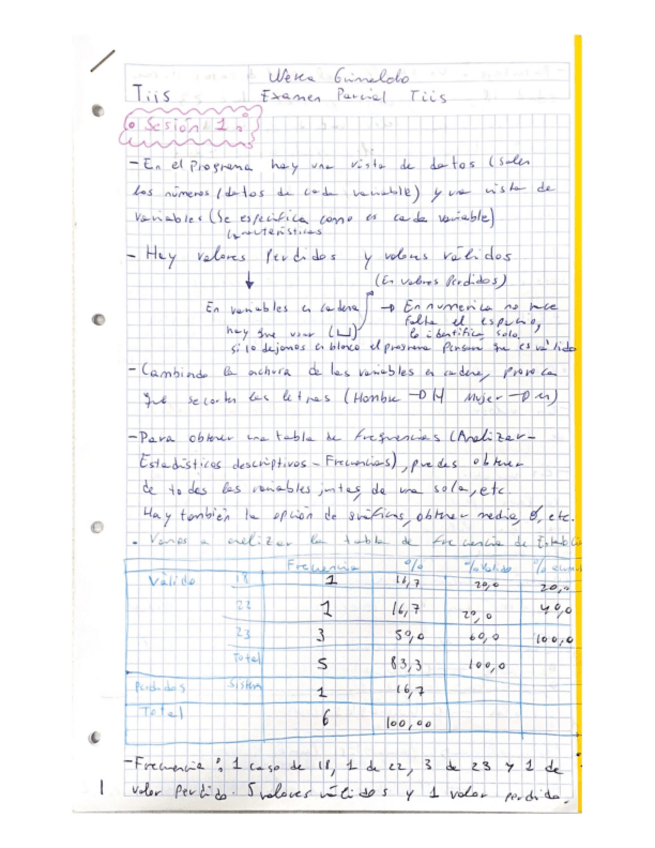 Examen Parcial Tiis
Tiis
Sesión 1:
- En el programa hay una vista de datos (salen
los números (datos de cada variable) y una vista de
variables (se especifica como es cada variable)
características
- Hay valores perdidos y valores válidos
(En valores Perdidos)
En variables en cadena → En numerica no hace
hay que usar (⊔) falta el espacio,
lo identifica solo,
si lo dejamos en blanco el programa piensa que es válido
- Cambiando la anchura de las variables en cadena, provoca
que se corten las letras (Hombre → H Mujer → M)
- Para obtener una tabla de frecuencias (Analizar -
Estadísticos descriptivos - Frecuencias), puedes obtener
de todas las variables juntas, de una sola, etc.
Hay también la opción de gráficos, obtener media, etc.
• Vamos a analizar la tabla de frecuencia de
Frecuencia % % válido %
Válido 18 1 16,7 20,0 20,0
22 1 16,7 20,0 40,0
23 3 50,0 60,0 100,0
Total 5 83,3 100,0
Perdidos Sistema 1 16,7
Total 6 100,00
- Frecuencia: 1 caso de 18, 1 de 22, 3 de 23 y 1 de
valor perdido. 5 valores válidos y 1 valor perdido.